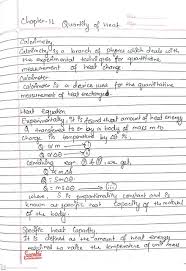 Chapter-12 Quantity of Heat
Calorimetry
Calorimetry is a branch of physics which deals with
the experimental techniques for quantitative
measurement of heat change.
Calorimeter
Calorimeter is a device used for the quantitative
measurement of heat exchanged.
Heat Equation
Experimentally, it is found that amount of heat energy
Q transferred to or by a body of mass m to
change its temperature by
Q ∝ m
Q ∝ Δθ
combining eqn we get,
Q ∝ mΔθ
Q = msΔθ
where, S is proportionality constant and is
known as specific heat capacity of the material
of the body.
Specific Heat Capacity
It is defined as the amount of heat energy
required to raise the temperature of unit mass